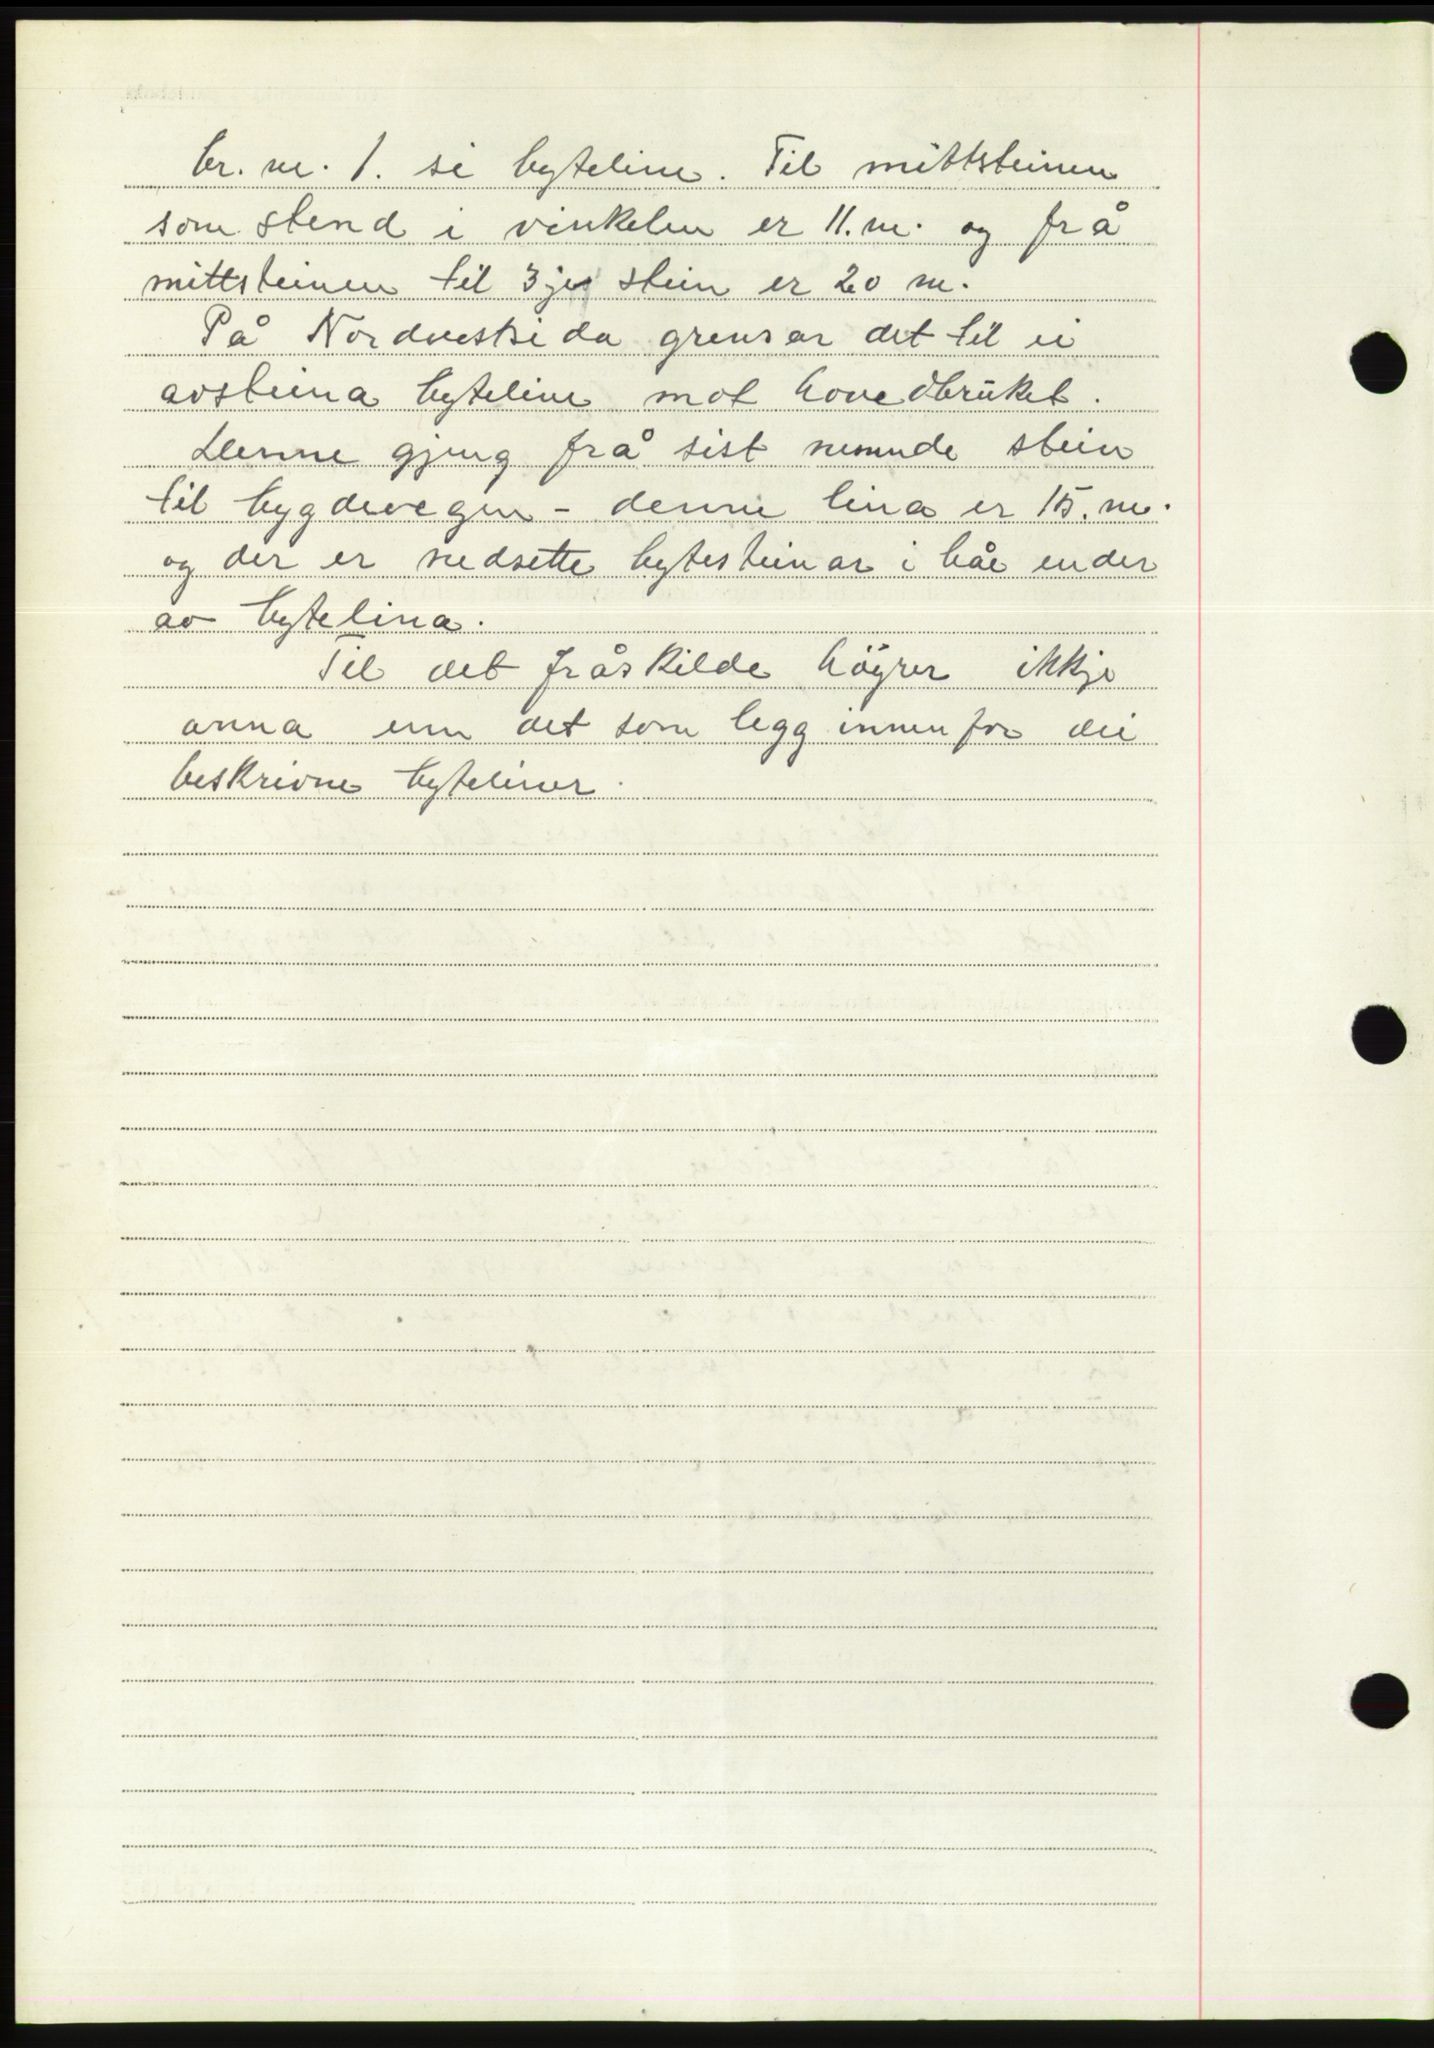 br. nr. 1. si byteline. Til mittsteinen
som stend i vinkelen er 11. m. og frå
mittsteinen til 3je stein er 20 m.
På Nordvestsida grensar det til ei
avsteina byteline mot hovedbruket.
Denne gjeng frå sist nemnde stein
til bygdevegen - denne lina er 15. m.
og der er nedsette bytesteinar i båe ender
av bytelina.
Til det fråskilde höyrer ikkje
anna enn det som legg innenfor dei
beskrivne bytelinor.